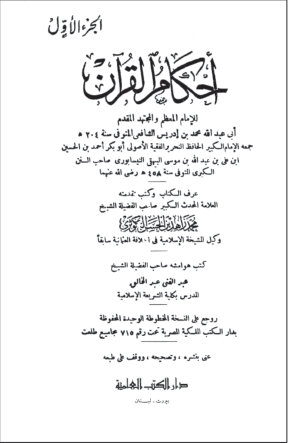 الجزء الأول
أحكام القرآن
للإمام المعظم والمجتهد المقدم
أبي عبد الله محمد بن إدريس الشافعي المتوفى سنة ٢٠٤ ه
جمعه الإمام الكبير الحافظ النحرير والفقيه الأصولي أبو بكر أحمد بن الحسين
ابن علي بن عبد الله بن موسى البيهقي النيسابوري صاحب السنن
الكبرى المتوفى سنة ٤٥٨ ه رضي الله عنهما
عرف الكتاب وكتب تقدمته
العلامة المحدث الكبير صاحب الفضيلة الشيخ
محمد زاهد بن الحسن الكوثري
وكيل المشيخة الإسلامية في الخلافة العثمانية سابقاً
كتب هوامشه صاحب الفضيلة الشيخ
عبد الغني عبد الخالق
المدرس بكلية الشريعة الإسلامية
روجع على النسخة المخطوطة الوحيدة المحفوظة
بدار الكتب الملكية المصرية تحت رقم ٧١٥ مجاميع طلعت
عني بنشره، وتصحيحه، ووقف على طبعه
دار الكتب العلمية
بيروت - لبنان